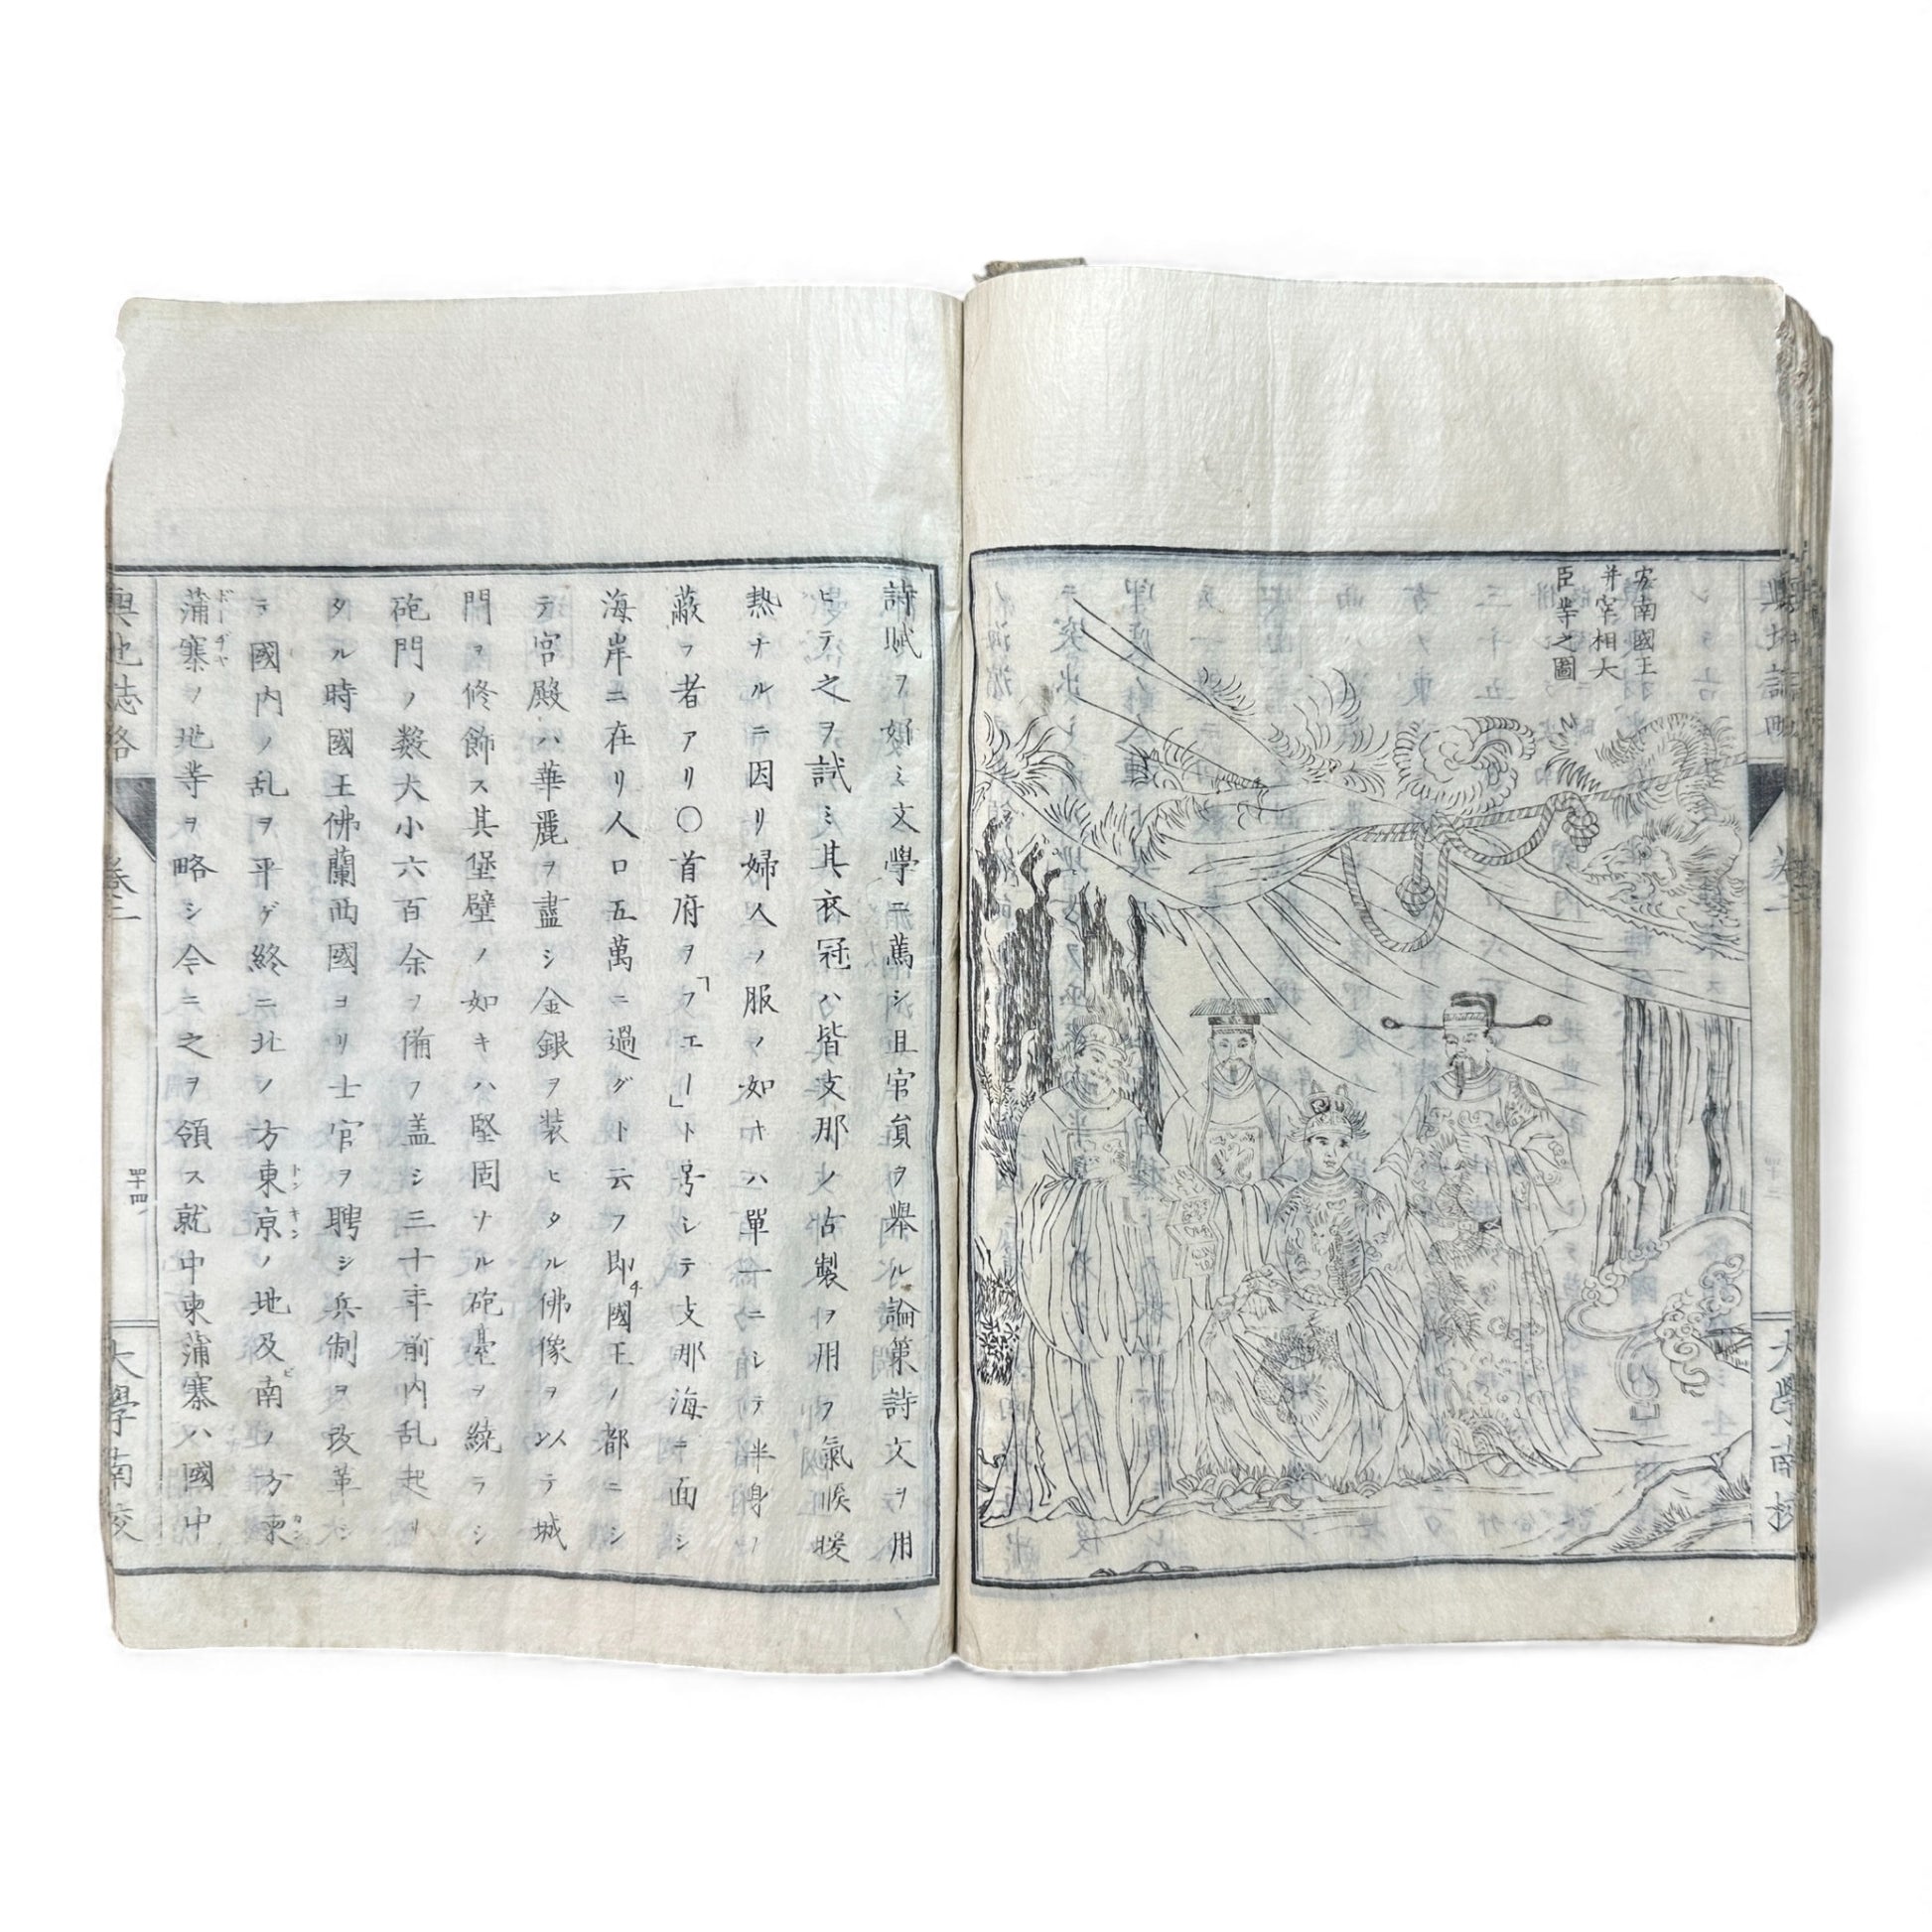 安南國王
并宰相大
臣等之圖
大學南校
詩賦ヲ好ミ文學ニ篤シ且官員ヲ擧ル論策詩文ヲ用
ヒテ之ヲ試ミ其衣冠ハ皆支那ノ古製ヲ用フ氣候暖
熱ナルニ因リ婦人ノ服ノ如キハ單一ニシテ半身ヲ
蔽フ者アリ〇首府ヲ「フエー」ト号シテ支那海ニ面シ
海岸ニ在リ人口五萬ニ過グト云フ即チ國王ノ都ニシ
テ宮殿ハ華麗ヲ盡シ金銀ヲ装ヒタル佛像ヲ以テ城
門ヲ修飾ス其堡壁ノ如キハ堅固ナル砲臺ヲ繞ラシ
砲門ノ数大小六百余ヲ備フ盖シ三十年前内乱起リ
タル時國王佛蘭西國ヨリ士官ヲ聘シ兵制ヲ改革シ
テ國内ノ乱ヲ平ゲ終ニ北ノ方東京ノ地及ビ南ノ方柬
トンキン
カン
蒲寨ノ地等ヲ略シ今ニ之ヲ領ス就中柬蒲寨ハ國中
ボーヂヤ
輿地誌略
卷二
四十四
大學南校